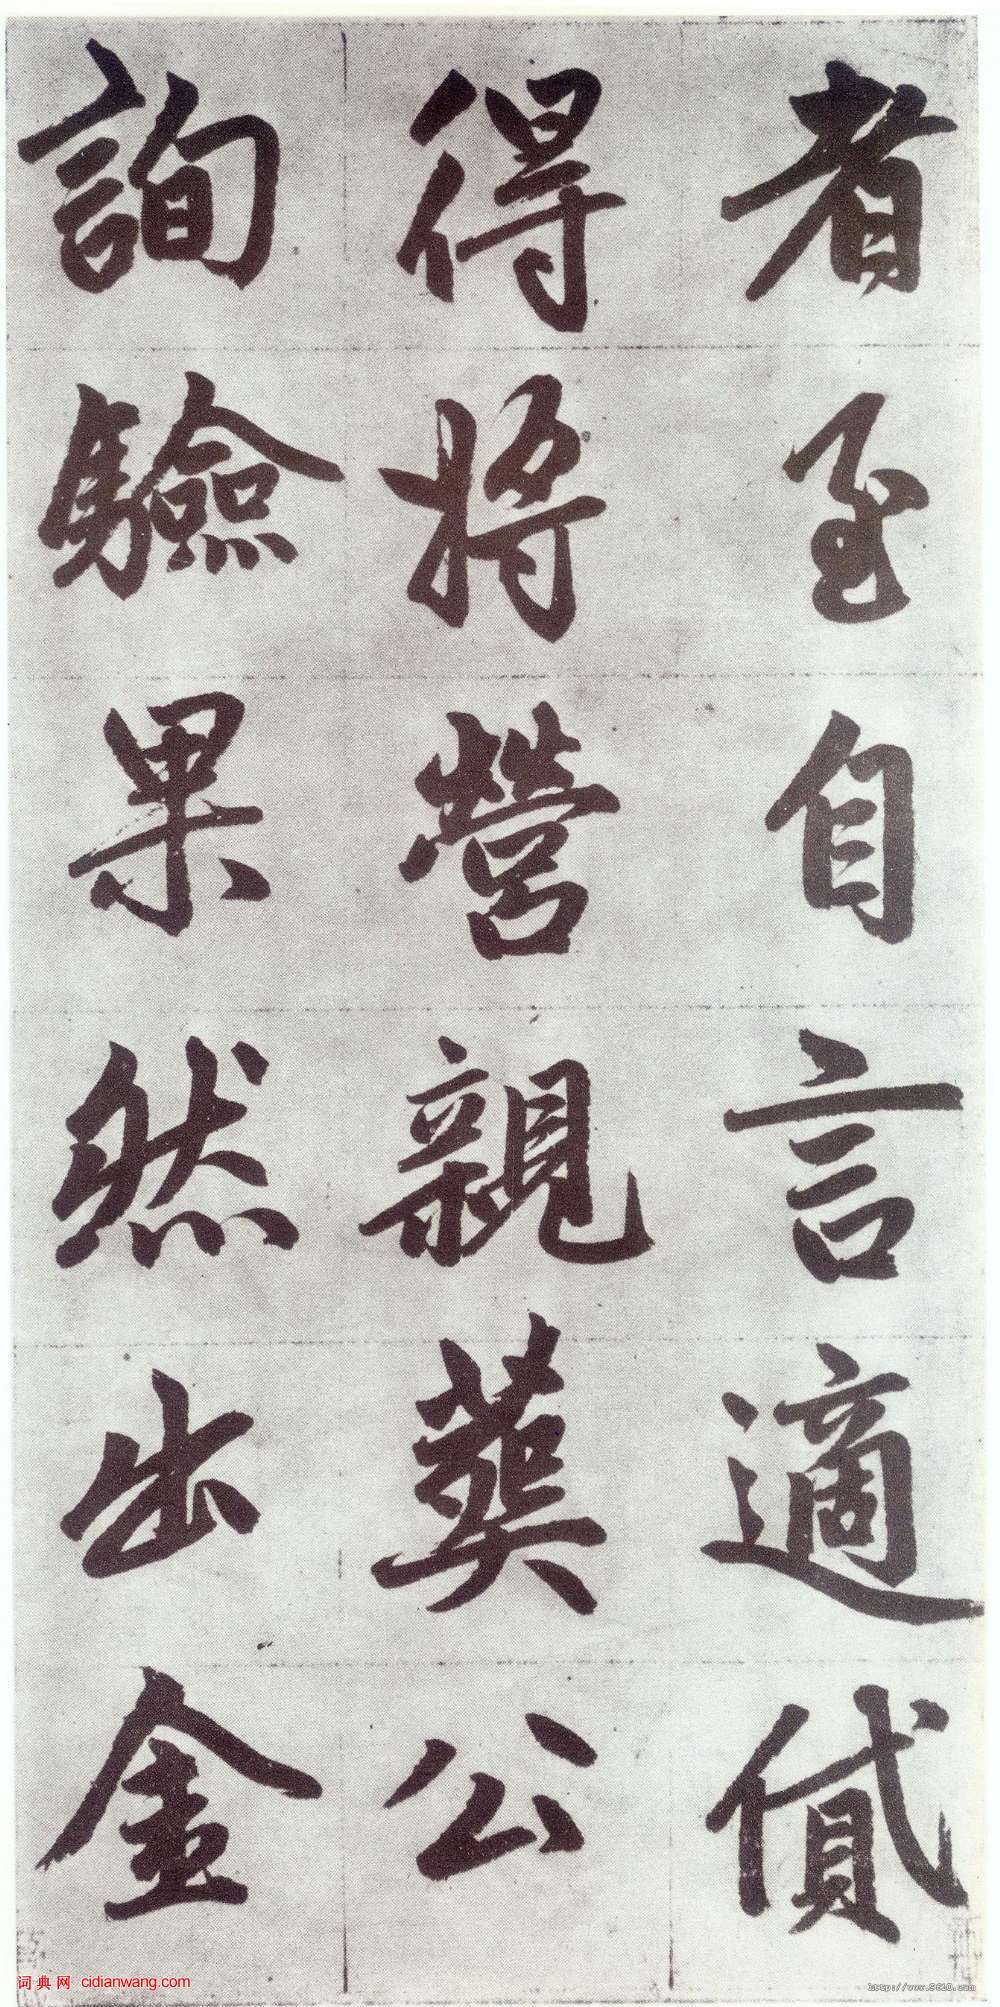 者至自言適貸
得將營親葬公
詢驗果然出金
词典网 cidianwang.com
http://www.5610.com